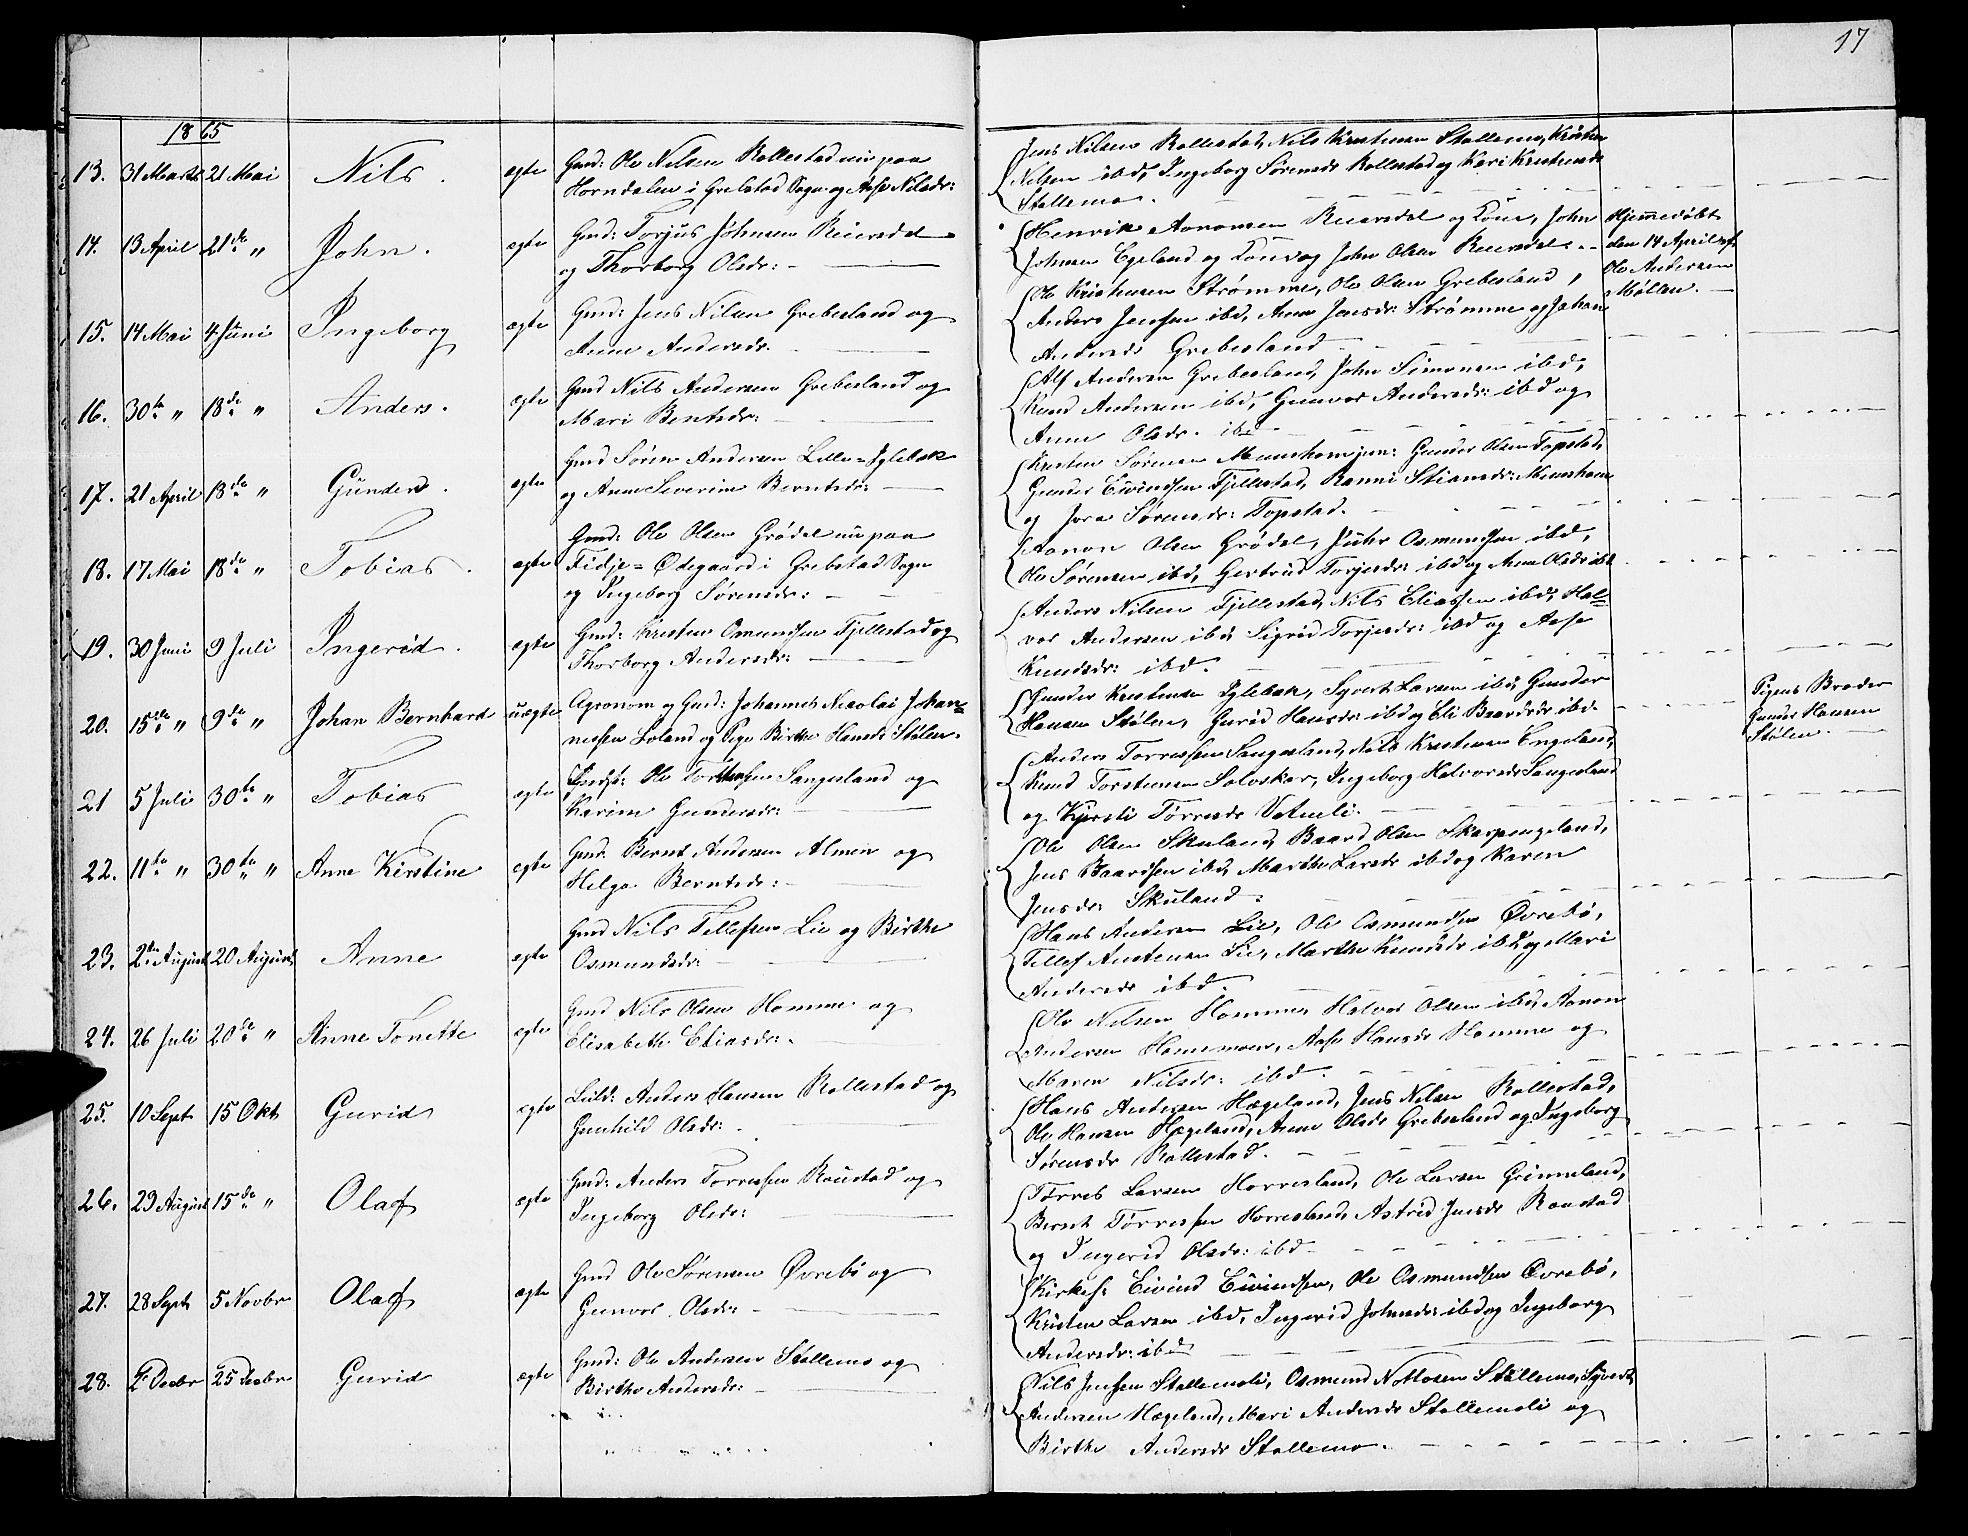 17
1865
13. 31 Marts 21 Mai Nils. ægte Gmd: Ole Nilsen Rallestad nu paa
Horndalen i Grebstad Sogn og Aase Nilsdr:
Jens Nilsen Rallestad, Nils Kristensen Stallemo, Kristen
Nilsen ibd, Ingeborg Sørensdr Rallestad og Kari Kristensdr
Stallemo.
14. 13 April 21de " John. ægte Gmd: Torjus Johnsen Reiersdal
og Thorborg Olsdr:
Henrik Aanonsen Reiersdal og Kone, John
Johnsen Egeland og Kone og John Olsen Reiersdal.
Hjemmedøbt
den 14 April af
Ole Andersen
Møllen.
15. 14 Mai 4 Juni Ingeborg ægte Gmd: Jens Nilsen Grebesland og
Anne Andersdr.
Ole Kristensen Strømme, Ole Olsen Grebesland,
Anders Jensen ibd, Anne Jensdr: Strømme og Johan
Andersdr Grebesland
16. 30te " 18de " Anders. ægte Gmd Nils Andersen Grebesland og
Mari Berntsdr:
Alf Andersen Grebesland, John Simonsen ibd,
Knud Andersen ibd, Gunvor Andersdr: ibd og
Anne Olsdr. ibd
17. 21 April 18de " Gunders. ægte Gmd Søren Andersen Lille-Iglebæk
og Anne Severine Berntsdr:
Kristen Sørensen jun: Gunder Olsen Topstad,
Gunder Eivindsen Fjellestad, Ranni Stiansdr:
og Jora Sørensdr: Topstad.
18. 17 Mai 18de " Tobias. ægte Gmd: Ole Olsen Grødal nu paa
Fidje-Ødegaard i Grebstad Sogn
og Ingeborg Sørensdr:
Aanon Olsen Grødal, Osmundsen ibd,
Ole Sørensen ibd, Gertrud Torjusdr: ibd og Anne Olsdr ibd
19. 30 Juni 9 Juli Ingerid. ægte Gmd: Kristen Osmundsen Fjellestad og
Thorborg Andersdr:
Anders Nilsen Fjellestad, Nils Eliassen ibd, Hal-
vor Andersen ibd, Sigrid Torjusdr: ibd og Aase
Knudsdr: ibd.
20. 15de " 9de " Johan Bernhard uægte Agronom og Gmd: Johannes Nicolai Johan-
nessen Loland og Pige Birthe Hansdr Stølen.
Gunder Kristensen Iglebæk, Syvert Larsen ibd, Gunder
Hansen Stølen, Gurid Hansdr ibd og Eli Baardsdr ibd.
Pigens Broder
Gunder Hansen
Stølen.
21 5 Juli 30te " Tobias ægte Ole Sangesland og
Karine Gundersdr:
Anders Torressen Sangesland, Nils Kristensen Engeland,
Knud Torstensen Solvsker, Ingeborg Halvorsdr Sangesland
og Kjersti Tørresdr Vatneli.
22. 11te " 30te " Anne Kirstine ægte Gmd: Bernt Andersen Almen og
Helge Berntsdr:
Ole Olsen Skuland, Baard Olsen Skarpengeland,
Jens Baardsen ibd, Marthe Larsdr ibd og Karen
Jensdr Skuland.
23. 2den August 20 August Anne ægte Gmd Nils Tellefsen Lie og Birthe
Osmundsdr:
Hans Andersen Lie, Ole Osmundsen Øvrebø,
Tellef Austensen Lie, Marthe Knudsdr ibd og Mari
Andersdr ibd.
24. 26 Juli 20de " Anne Tonette ægte Gmd Nils Olsen Homme og
Elisabeth Eliasdr.
Ole Nilsen Homme, Halvor Olsen ibd, Aanon
Andersen Hommemoen, Aase Hansdr Homme og
Maren Nilsdr: ibd.
25. 10 Sept 15 Okt Gurid ægte Leild: Anders Hansen Rallestad og
Gunhild Olsdr:
Hans Andersen Hægeland, Jens Nilsen Rallestad,
Ole Hansen Hægeland, Anne Olsdr Grebesland og Ingeborg
Sørensdr Rallestad.
26. 29 August 15de " Olaf ægte Gmd: Anders Torressen Raustad og
Ingeborg Olsdr:
Tørres Larsen Horresland, Ole Larsen Grimeland,
Bernt Tørressen Horresland, Astrid Jensdr Raustad
og Ingerid Olsdr: ibd
27. 28 Sept 5 Novbr Olaf ægte Gmd Ole Sørensen Øvrebø og
Gunvor Olsdr:
Kirkes: Eivind Eivindsen, Ole Osmundsen Øvrebø,
Kristen Larsen ibd, Ingerid Johnsdr: ibd og Ingeborg
Andersdr: ibd
28. 2 Decbr 25 Decbr Gurid ægte Gmd: Ole Andersen Stallemo og
Birthe Andersdr:
Nils Jensen Stallemoli, Osmund Stallemo, Syvert
Andersen Hægeland, Mari Andersdr Stallemoli og
Birthe Andersdr Stallemo.